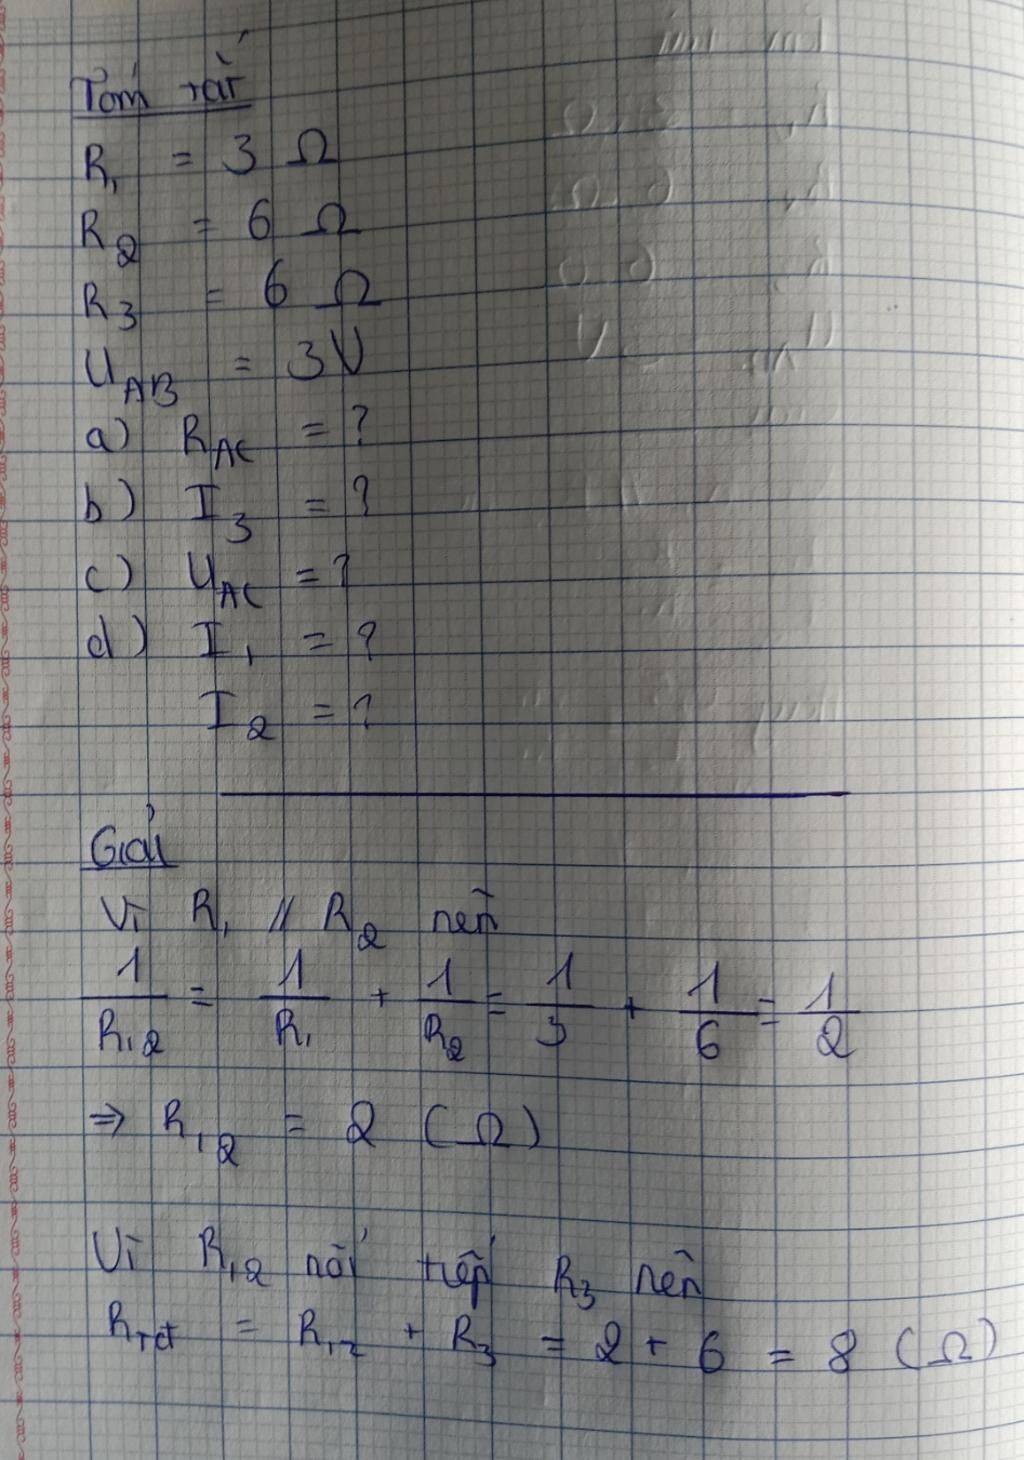 Tóm tắt
R₁ = 3 Ω
R₂ = 6 Ω
R₃ = 6 Ω
U_AB = 3V
a) R_AC = ?
b) I₃ = ?
c) U_AC = ?
d) I₁ = ?
I₂ = ?
Giải
Vì R₁ // R₂ nên
1/R₁₂ = 1/R₁ + 1/R₂ = 1/3 + 1/6 = 1/2
⇒ R₁₂ = 2 (Ω)
Vì R₁₂ nối tiếp R₃ nên
R_tđ = R₁₂ + R₃ = 2 + 6 = 8 (Ω)